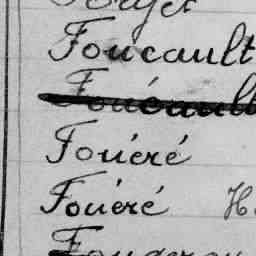 Foucault
Foucault
Fouéré
Fouéré H